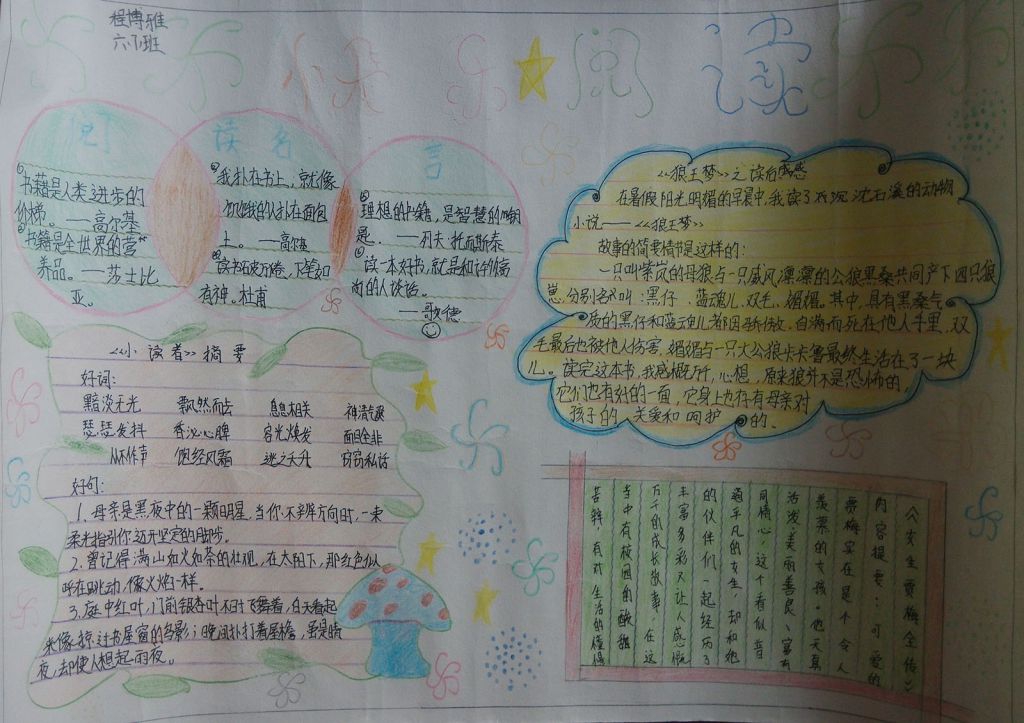 程博雅
六(1)班
阅读
阅
读名
言
书籍是人类进步的
阶梯。——高尔基
书籍是全世界的营
养品。——莎士比
亚。
我扑在书上,就像
饥饿的人扑在面包
上。——高尔基
读书破万卷,下笔如
有神。杜甫
理想的书籍,是智慧的钥
是。——列夫·托尔斯泰
读一本好书,就是和许多高
尚的人谈话。
——歌德
《狼王梦》之读后感
在暑假阳光明媚的早晨中,我读了沈石溪的动物
小说——《狼王梦》
故事的简要情节是这样的:
一只叫紫岚的母狼与一只威风凛凛的公狼黑桑共同产下四只狼
崽,分别名叫:黑仔、蓝魂儿、双毛、媚媚。其中,具有黑桑气
质的黑仔和蓝魂儿都因骄傲、自满而死在他人手里,双
毛最后也被他人伤害,媚媚与一只大公狼卡卡鲁最终生活在了一块
儿。读完这本书,我感概万千,心想,原来狼并不是恐怖的,
它们也有好的一面,它身上也存有母亲对
孩子的关爱和呵护的。
《小读者》摘要
好词:
黯淡无光 飘然而去 息息相关 神清气爽
瑟瑟发抖 香沁心脾 容光焕发 面目全非
从不作声 饱经风霜 逃之夭夭 窃窃私语
好句:
1、母亲是黑夜中的一颗明星,当你不辨方向时,一束
柔光指引你迈开坚定的脚步。
2、曾记得满山如火如荼的壮观,在太阳下,那红色似
呼在跳动,像火焰一样。
3、庭中红叶,门前银杏叶不时飞舞着,白天看起
来像掠过书屋窗的鸟影;晚间扑打着屋檐,虽是晴
夜,却使人想起雨夜。
《女生贾梅全传》
内容提要:可爱的
贾梅实在是个令人
羡慕的女孩。他天真
活泼、美丽善良、富有
同情心。这个看似普
通平凡的女生,却和她
的伙伴们一起经历了
丰富多彩又让人感慨
万千的成长故事。在这
书中有校园的酸甜
苦辣,有对生活的懂得